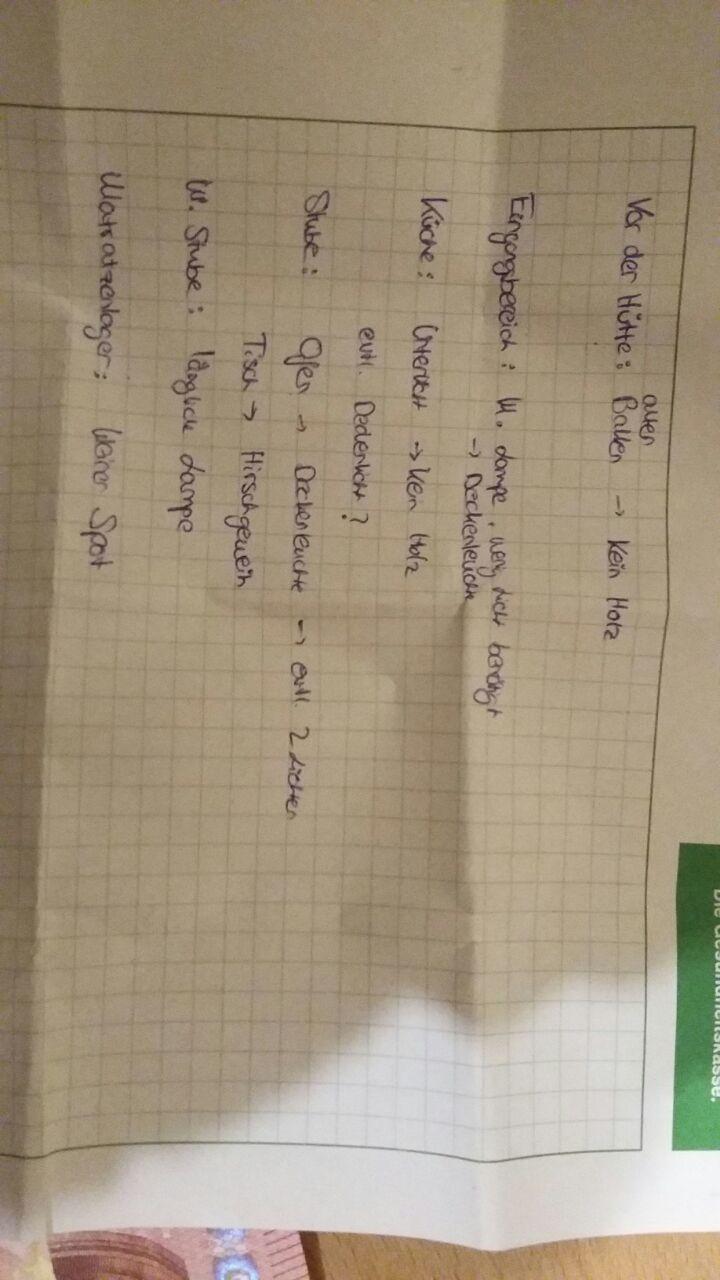 Vor der Hütte: alten Balken → kein Holz
Eingangsbereich: kl. Lampe, wenig Licht benötigt
→ Deckenleuchte
Küche: Unterlicht → kein Holz
evtl. Deckenlicht?
Stube: Ofen → Deckenleuchte → evtl. 2 Lichter
Tisch → Hirschgeweih
kl. Stube: länglich Lampe
Matratzenlager: kleiner Spot
Die Gesundheitskasse.